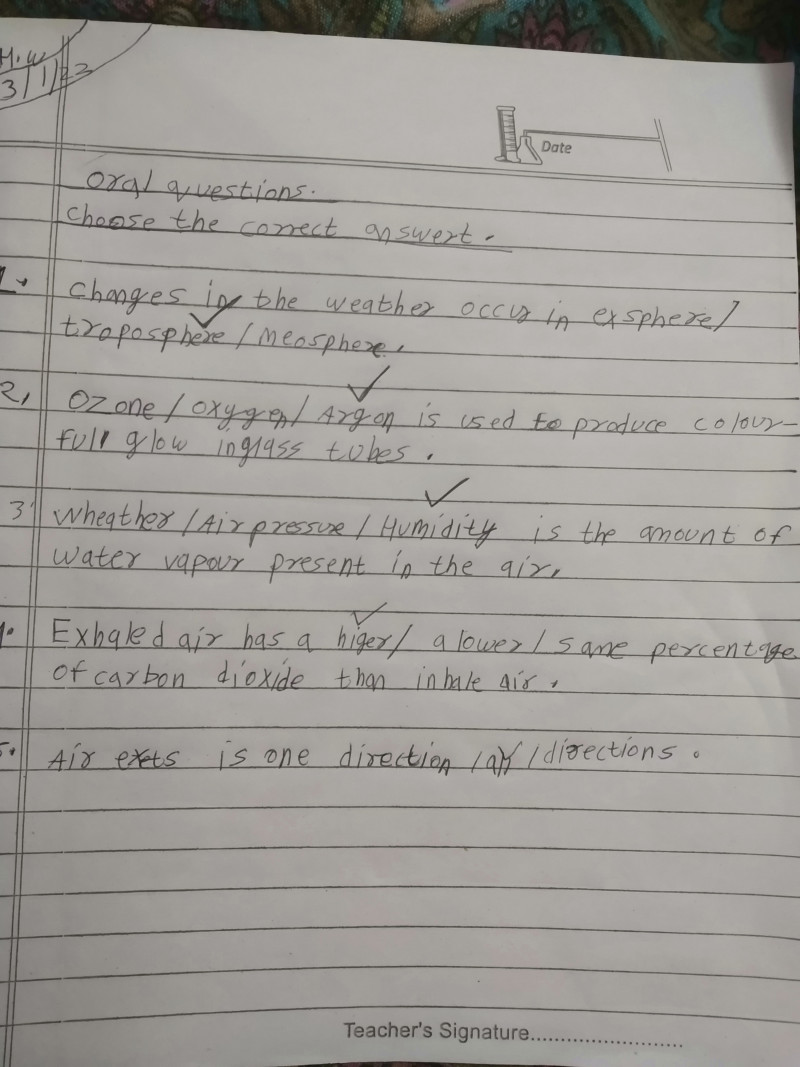 H.W
3/1/23
Date
Oral questions.
Choose the correct answert.
1. Changes in the weather occur in exsphere/
troposphere / Meosphere.
2, Ozone / Oxygen / Argon is used to produce colour-
full glow inglass tubes.
3 Wheather / Air pressure / Humidity is the amount of
water vapour present in the air.
4. Exhaled air has a higer / a lower / same percentage
of carbon dioxide than inhale air.
5. Air exets is one direction / all / directions.
Teacher's Signature..........................